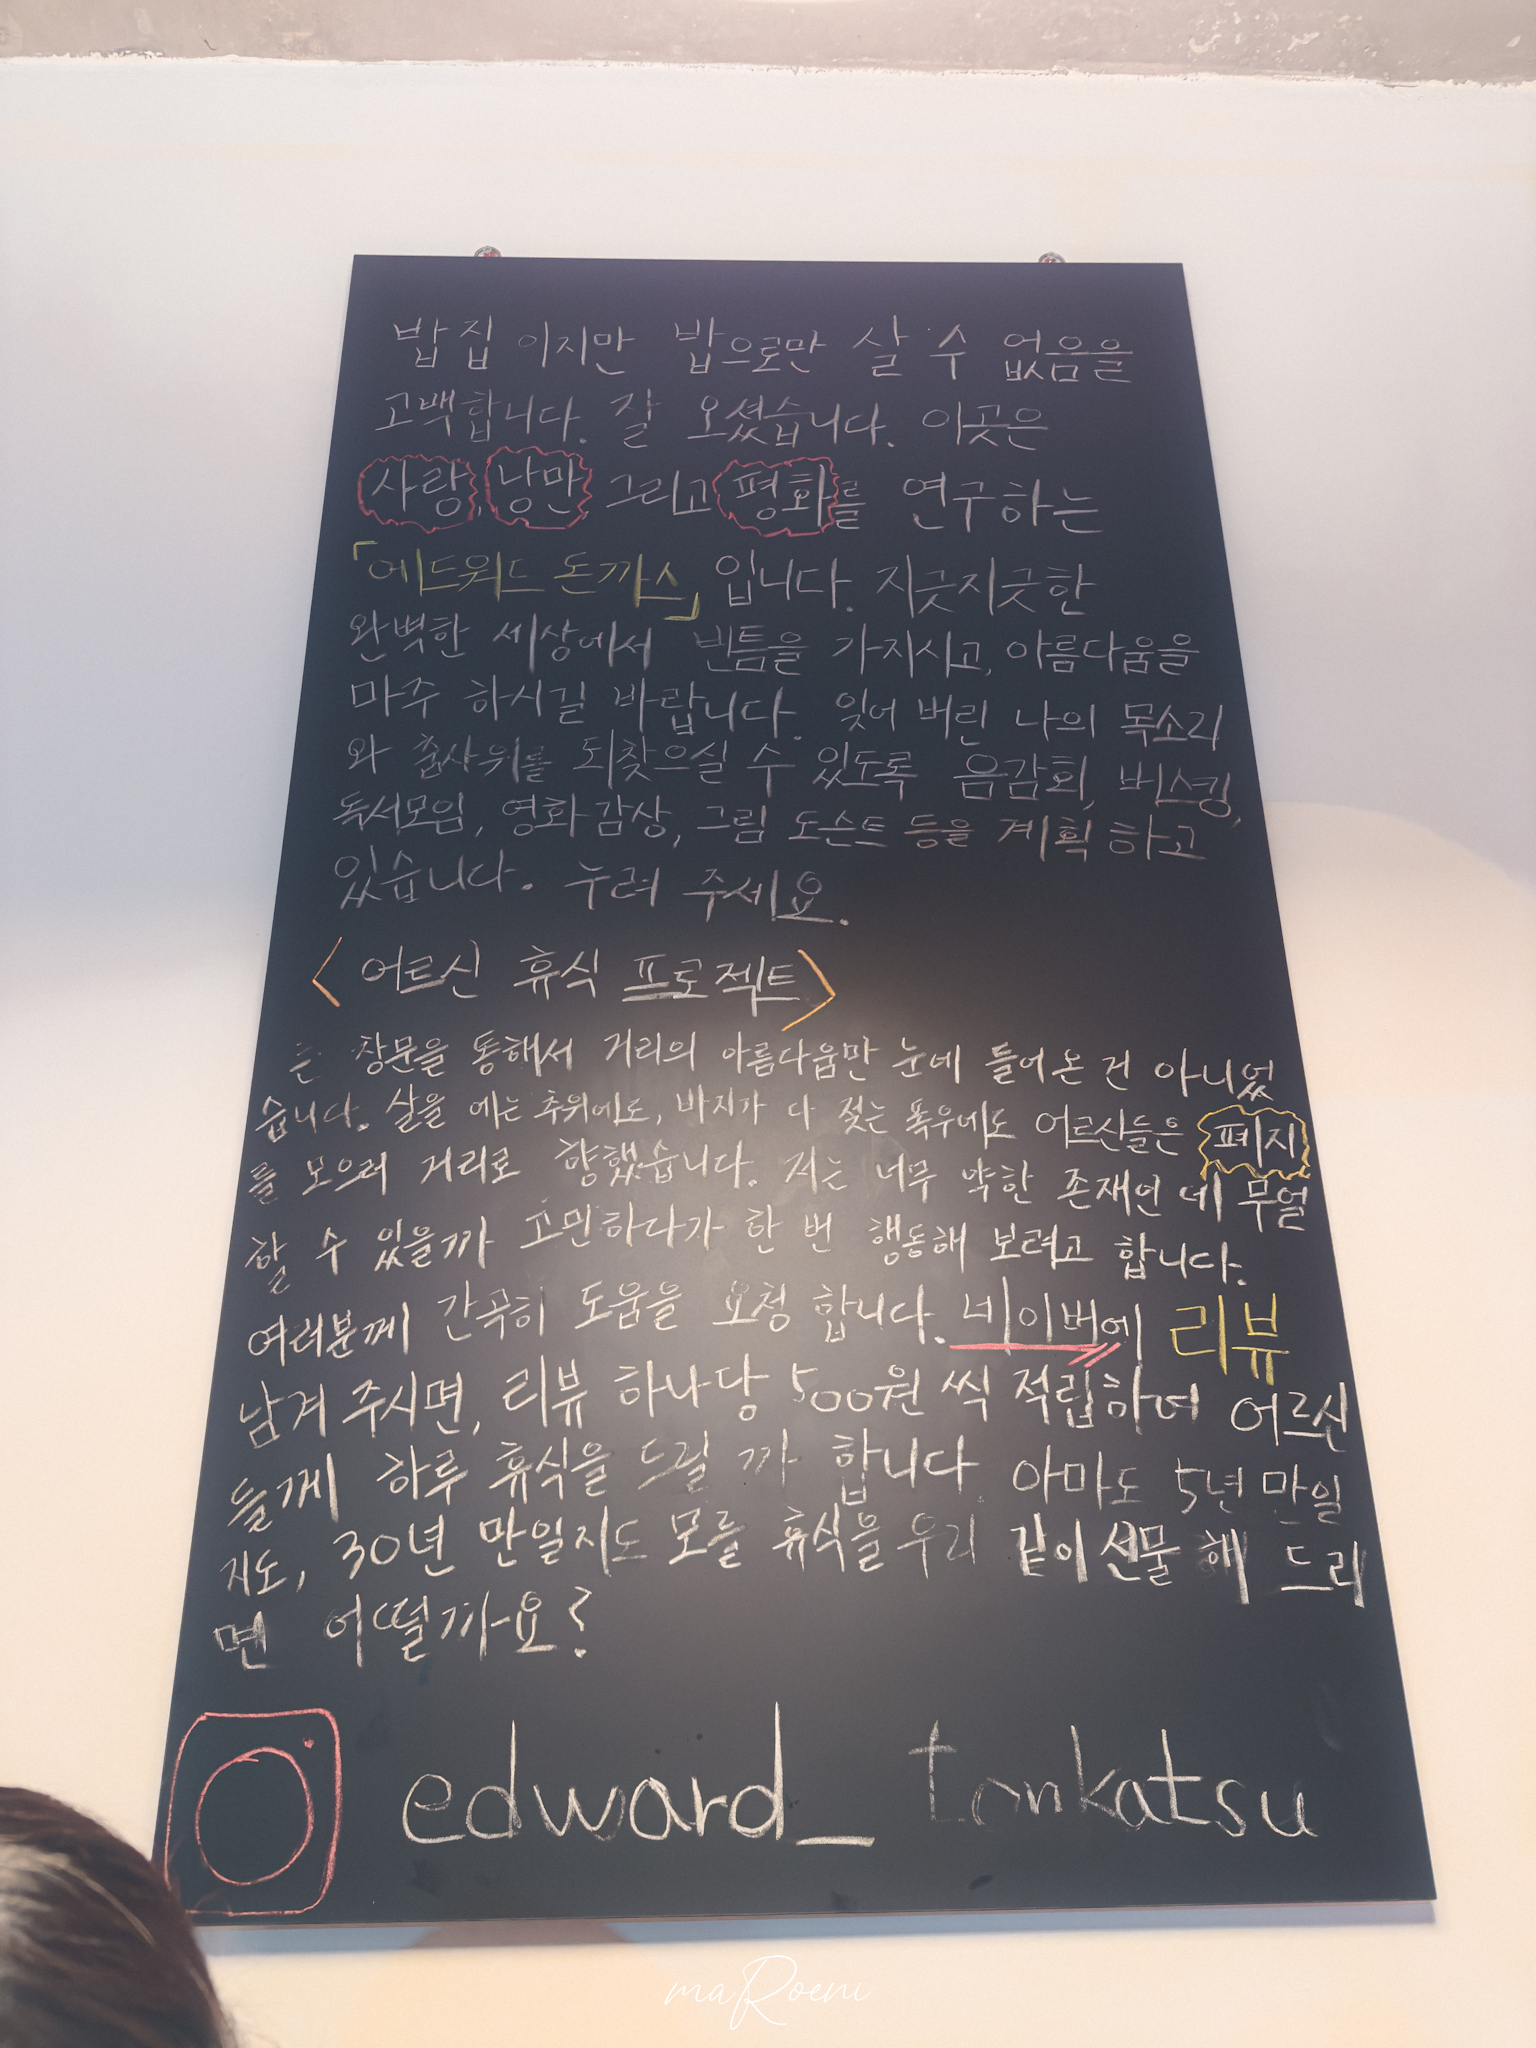 밥집이지만 밥으로만 살 수 없음을
고백합니다. 잘 오셨습니다. 이곳은
사랑, 낭만 그리고 평화를 연구하는
「에드워드 돈까스」입니다. 지긋지긋한
완벽한 세상에서 빈틈을 가지시고, 아름다움을
마주 하시길 바랍니다. 잊어 버린 나의 목소리
와 춤사위를 되찾으실 수 있도록 음감회, 버스킹,
독서모임, 영화감상, 그림 도슨트 등을 계획 하고
있습니다. 누려 주세요.
<어르신 휴식 프로젝트>
큰 창문을 통해서 거리의 아름다움만 눈에 들어온 건 아니었
습니다. 살을 에는 추위에도, 바지가 다 젖는 폭우에도 어르신들은 폐지
를 모으러 거리로 향했습니다. 저는 너무 약한 존재인데 무얼
할 수 있을까 고민하다가 한 번 행동해 보려고 합니다.
여러분께 간곡히 도움을 요청 합니다. 네이버에 리뷰
남겨 주시면, 리뷰 하나당 500원 씩 적립하여 어르신
들께 하루 휴식을 드릴 까 합니다. 아마도 5년 만일
지도, 30년 만일지도 모를 휴식을 우리 같이 선물 해 드리
면 어떨까요?
edward_tonkatsu
maRoeni